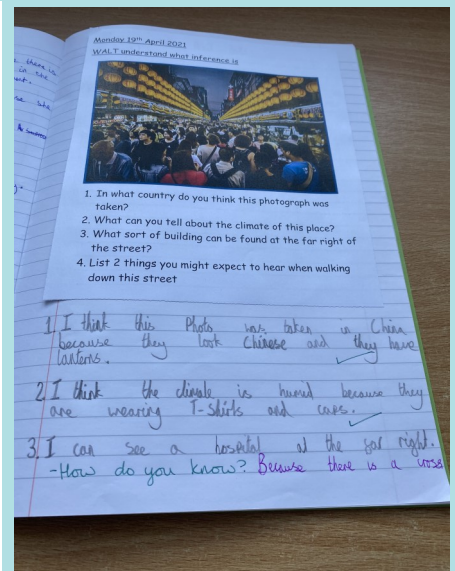 there is
in the
se she
Monday 19th April 2021
WALT understand what inference is
1. In what country do you think this photograph was
taken?
2. What can you tell about the climate of this place?
3. What sort of building can be found at the far right of
the street?
4. List 2 things you might expect to hear when walking
down this street
1. I think this Photo was taken in China
because they look Chinese and they have
lanterns.
2. I think the climate is humid because they
are wearing T-shirts and caps.
3. I can see a hospital at the far right.
-How do you know? Because there is a cross